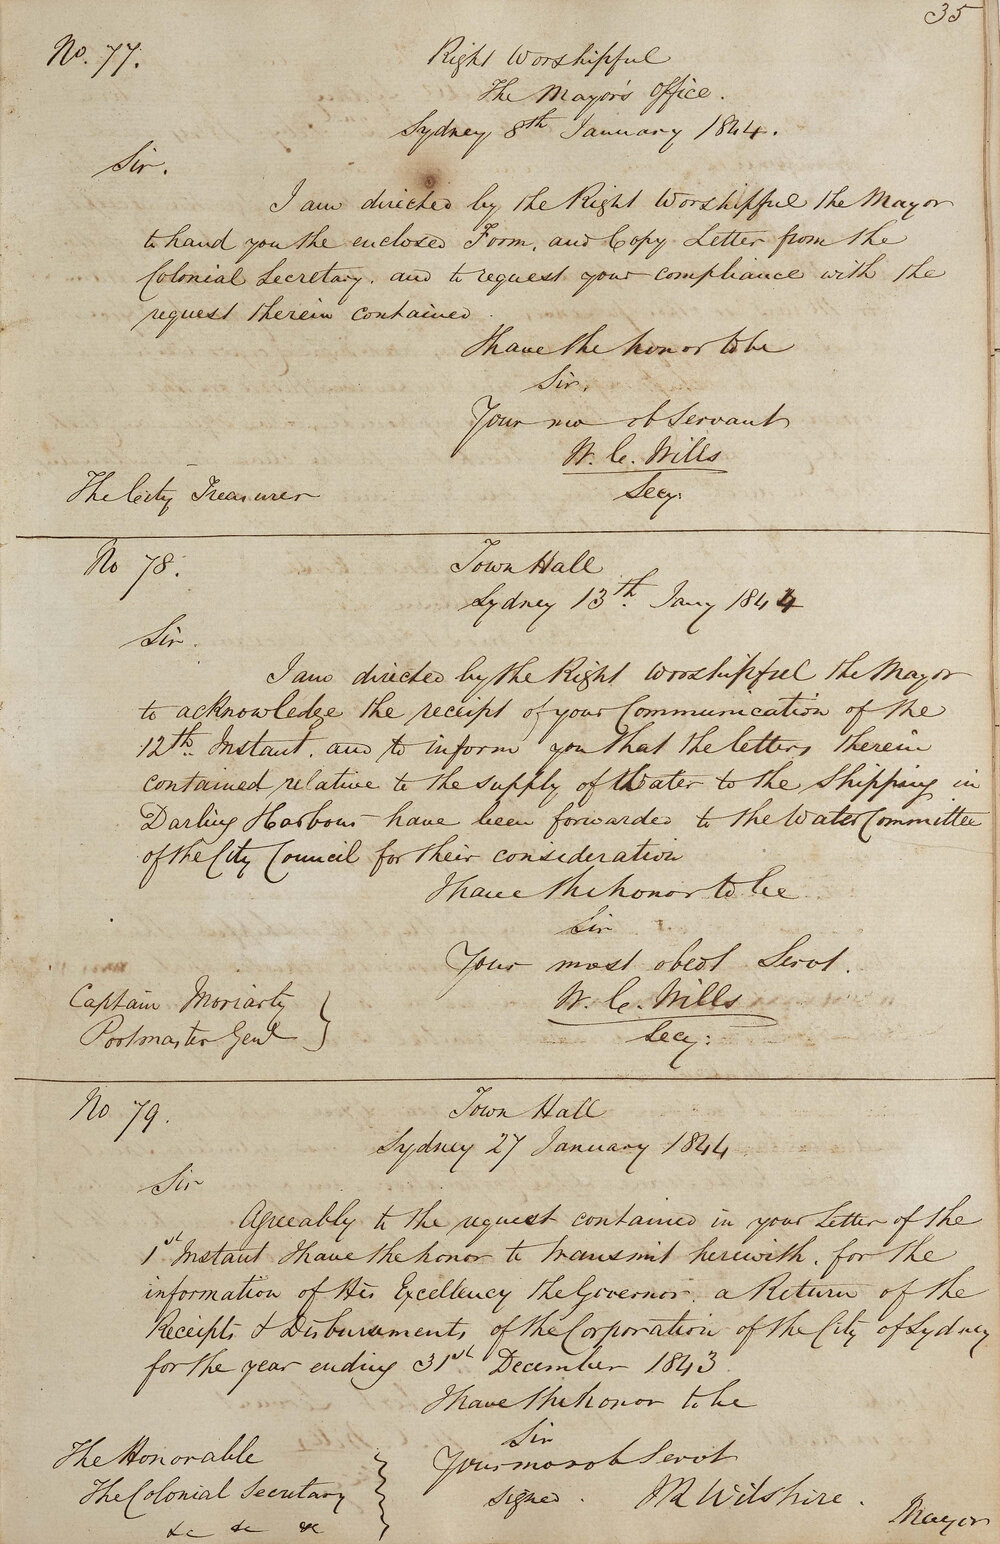 35
No. 77.
Right Worshipful
The Mayor's Office.
Sydney 8th January 1844.
Sir.
I am directed by the Right Worshipful the Mayor
to hand you the enclosed Form, and Copy Letter from the
Colonial Secretary, and to request your compliance with the
request therein contained.
I have the honor to be
Sir,
Your mo ob Servant
W. C. Wills
Secy:
The City Treasurer
No 78.
Town Hall
Sydney 13th. Jany 1844
Sir.
I am directed by the Right Worshipful the Mayor
to acknowledge the receipt of your Communication of the
12th. Instant, and to inform you that the letters therein
contained relative to the supply of Water to the Shipping in
Darling Harbour have been forwarded to the Water Committee
of the City Council for their consideration
I have the honor to be
Sir
Your most obedt Servt.
W. C. Wills
Secy:
Captain Moriarty
Postmaster Genl
No 79.
Town Hall
Sydney 27 January 1844
Sir
Agreeably to the request contained in your Letter of the
1st Instant I have the honor to transmit herewith, for the
information of His Excellency the Governor, a Return of the
Receipts & Disbursments of the Corporation of the City of Sydney
for the year ending 31st December 1843
I have the honor to be
Sir
Your mo ob Servt
signed. J R Wilshire.
Mayor
The Honorable
The Colonial Secretary
&c &c &c